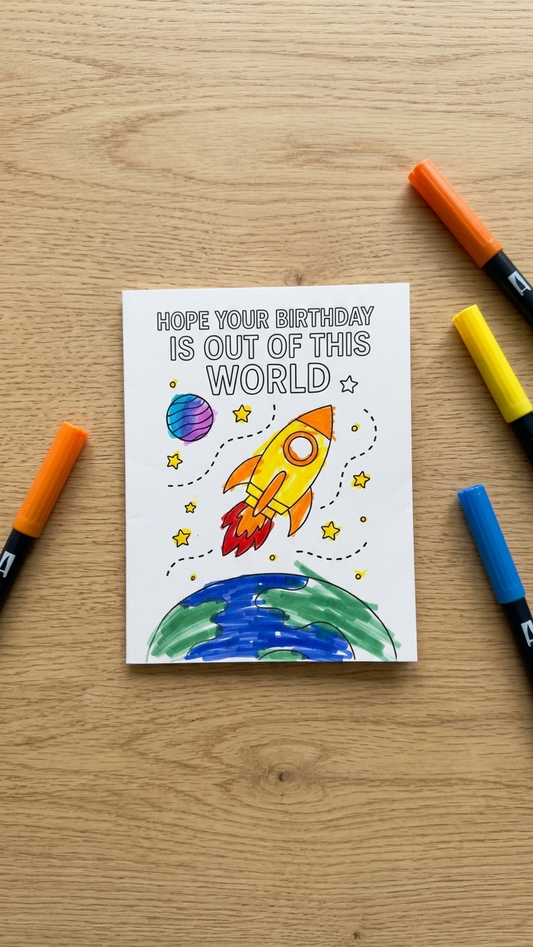 HOPE YOUR BIRTHDAY
IS OUT OF THIS
WORLD